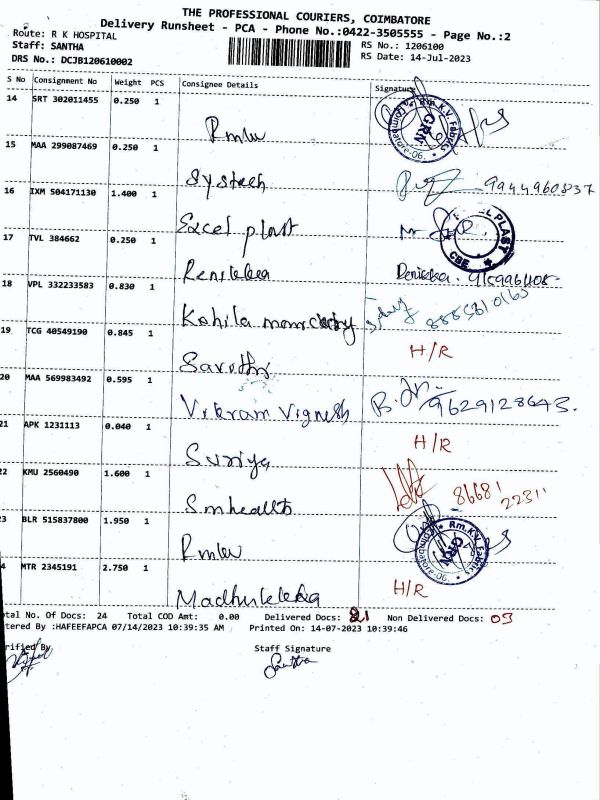 THE PROFESSIONAL COURIERS, COIMBATORE
Delivery Runsheet - PCA - Phone No.:0422-3505555 - Page No.:2
Route: R K HOSPITAL
Staff: SANTHA
RS No.: 1206100
DRS No.: DCJB120610002
RS Date: 14-Jul-2023
S No Consignment No Weight PCS Consignee Details Signature
14 SRT 302011455 0.250 1
Rm.K.V. Fabrics Coimbatore-06. GRN
Rmkv
15 MAA 299087469 0.250 1
Systech 9944960837
16 IXM 504171130 1.400 1
Excel plast
PLAST CBE
17 TVL 384662 0.250 1
18 VPL 332233583 0.830 1
Kohila
19 TCG 40549190 0.845 1
H/R
20 MAA 569983492 0.595 1
Vikram Vignesh 9629128643.
21 APK 1231113 0.040 1
H/R
Suriya
22 KMU 2560490 1.600 1
8668
Smhealth
23 BLR 515837800 1.950 1
Rm.K.V. Fabrics Coimbatore-06. GRN
Rmkv
MTR 2345191 2.750 1
H/R
Madhulekha
tal No. Of Docs: 24 Total COD Amt: 0.00 Delivered Docs: 21 Non Delivered Docs: 03
tered By :HAFEEFAPCA 07/14/2023 10:39:35 AM Printed On: 14-07-2023 10:39:46
rified By Staff Signature
Santha